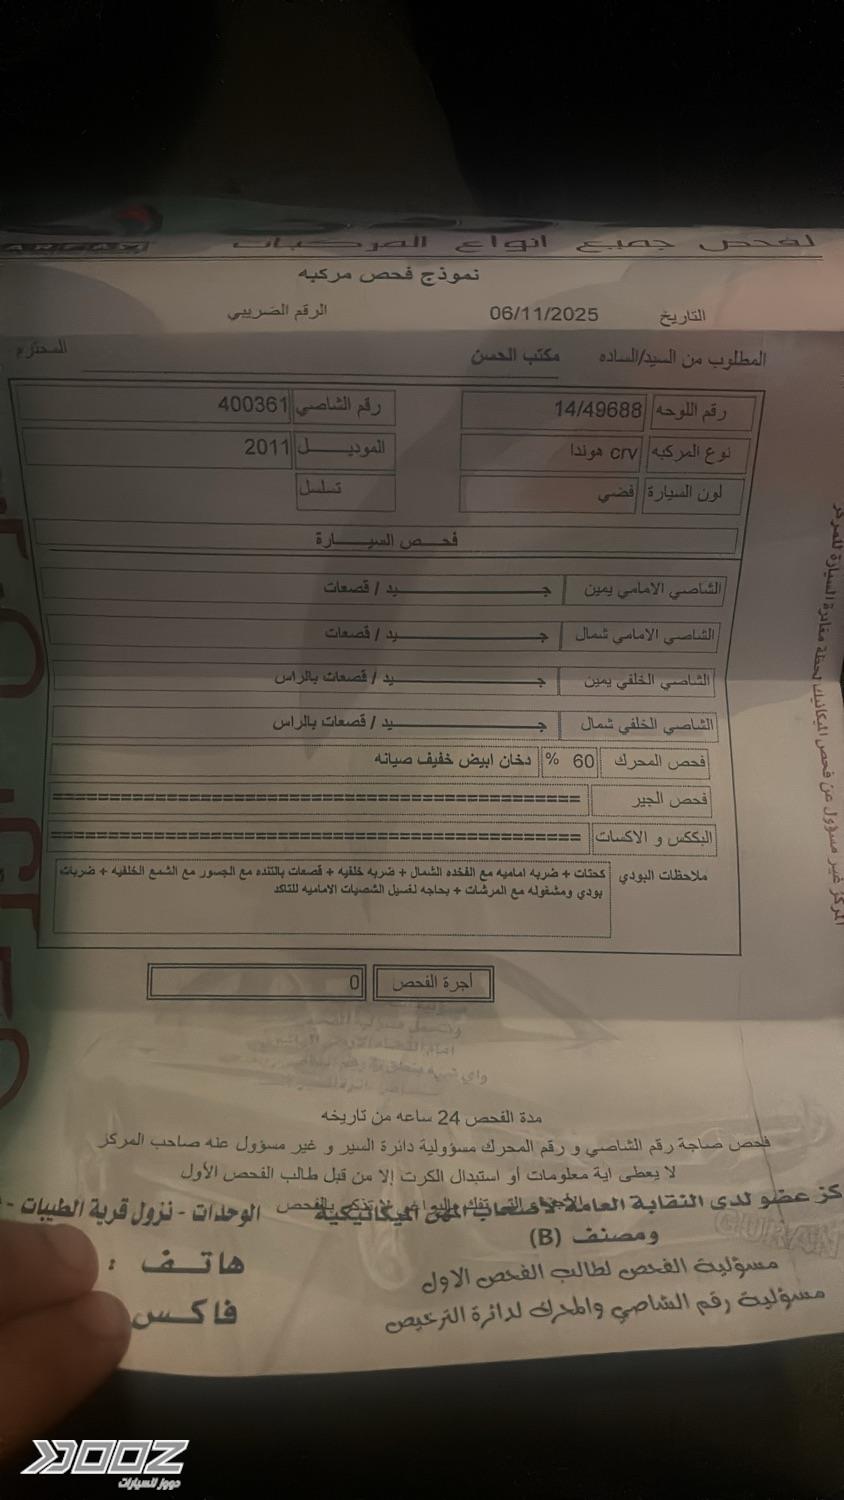 لفحص جميع انواع المركبات
نموذج فحص مركبه
التاريخ 06/11/2025 الرقم الضريبي
المطلوب من السيد/الساده مكتب الحسن المحترم
رقم اللوحه 14/49688 رقم الشاصي 400361
نوع المركبه crv هوندا الموديل 2011
لون السيارة فضي تسلسل
فحص السيارة
الشاصي الامامي يمين جيد / قصعات
الشاصي الامامي شمال جيد / قصعات
الشاصي الخلفي يمين جيد / قصعات بالراس
الشاصي الخلفي شمال جيد / قصعات بالراس
فحص المحرك 60 % دخان ابيض خفيف صيانه
فحص الجير ==============================================
البككس و الاكسات ==============================================
ملاحظات البودي كحتات + ضربه اماميه مع الفخده الشمال + ضربه خلفيه + قصعات بالتنده مع الجسور مع الشمع الخلفيه + ضربات
بودي ومشغوله مع المرشات + بحاجه لغسيل الشصيات الاماميه للتاكد
أجرة الفحص 0
مدة الفحص 24 ساعه من تاريخه
فحص صاجة رقم الشاصي و رقم المحرك مسؤولية دائرة السير و غير مسؤول عنه صاحب المركز
لا يعطى اية معلومات أو استبدال الكرت إلا من قبل طالب الفحص الأول
كز عضو لدى النقابة العامة لأصحاب المهن الميكانيكية الوحدات - نزول قرية الطيبات -
ومصنف (B)
هاتف :
مسؤولية الفحص لطالب الفحص الاول
فاكس
مسؤولية رقم الشاصي والمحرك لدائرة الترخيص
المركز غير مسؤول عن فحص الميكانيك لحظة مغادرة السيارة للمركز
DOOZ
دووز للسيارات